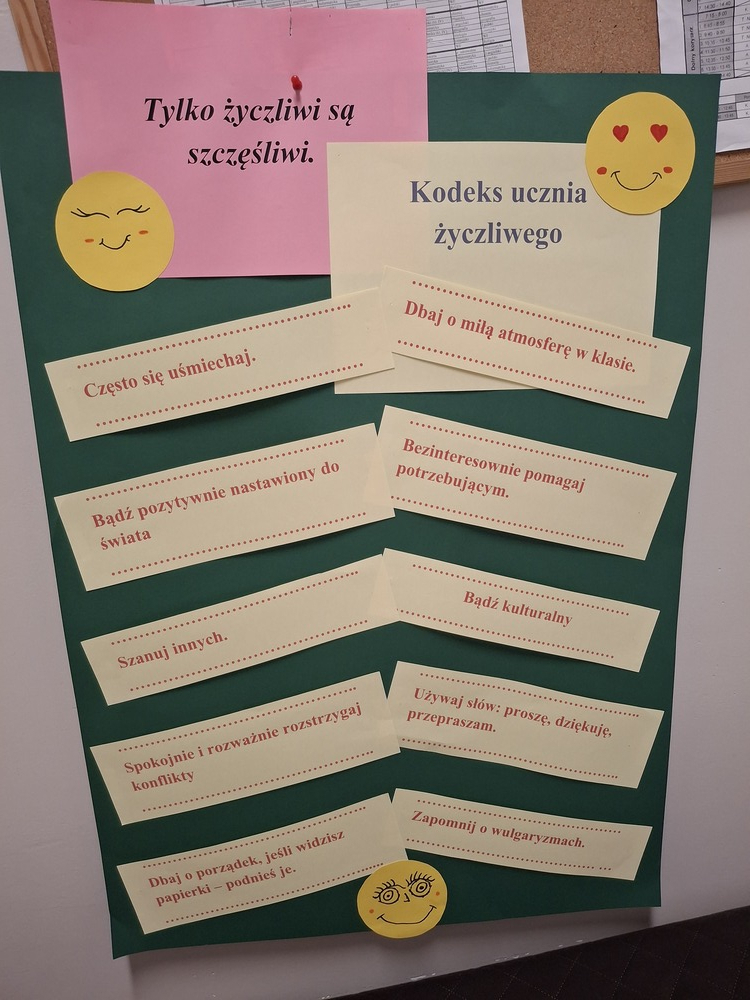 Tylko życzliwi są
szczęśliwi.
Kodeks ucznia
życzliwego
Często się uśmiechaj.
Dbaj o miłą atmosferę w klasie.
Bądź pozytywnie nastawiony do
świata
Bezinteresownie pomagaj
potrzebującym.
Szanuj innych.
Bądź kulturalny
Spokojnie i rozważnie rozstrzygaj
konflikty
Używaj słów: proszę, dziękuję,
przepraszam.
Dbaj o porządek, jeśli widzisz
papierki – podnieś je.
Zapomnij o wulgaryzmach.